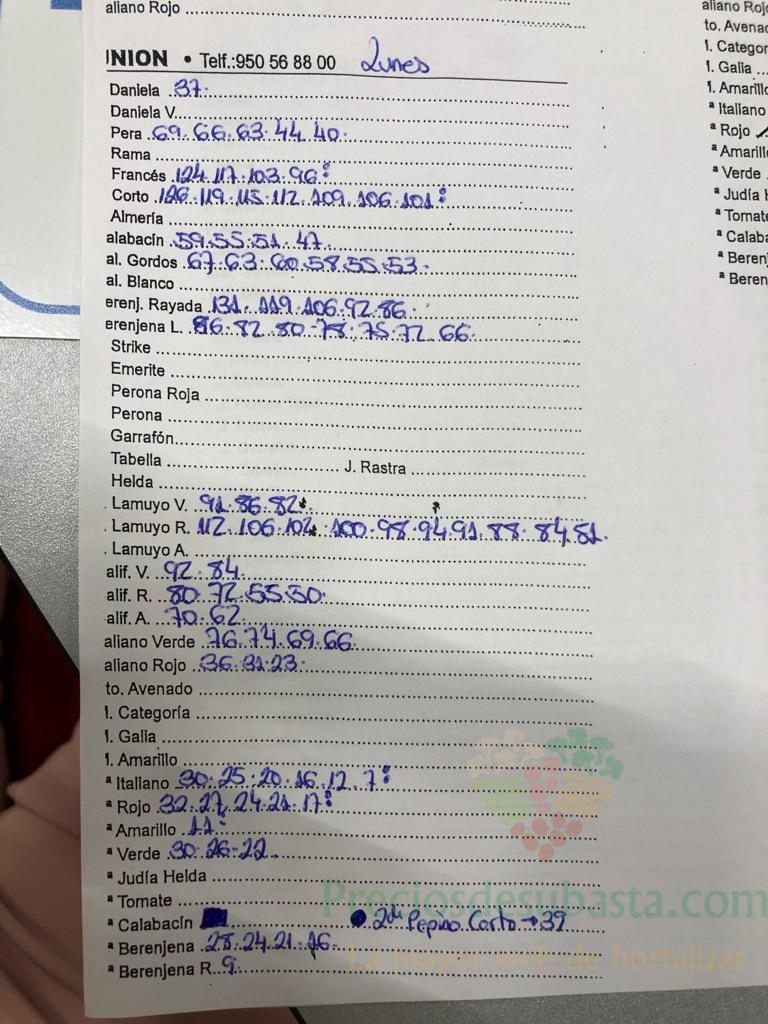 aliano Rojo
aliano Rojo
to. Avenad
UNION • Telf.:950 56 88 00 Lunes
l. Categor
l. Galia
Daniela 37.
l. Amarillo
Daniela V.
ª Italiano
Pera 69. 66. 63. 44. 40.
ª Rojo
Rama
ª Amarill
Francés 124. 117. 103. 96
ª Verde
Corto 126. 119. 115. 112. 109. 106. 101
ª Judía H
Almería
ª Tomate
alabacín 59. 55. 51. 47.
ª Calaba
al. Gordos 67. 63. 60. 58. 55. 53.
ª Beren
al. Blanco
ª Beren
erenj. Rayada 131. 119. 106. 92. 86.
erenjena L. 86. 82. 80. 78. 75. 72. 66.
Strike
Emerite
Perona Roja
Perona
Garrafón
Tabella J. Rastra
Helda
Lamuyo V. 91. 86. 82.
Lamuyo R. 112. 106. 102. 100. 98. 94. 91. 88. 84. 81.
Lamuyo A.
alif. V. 92. 84.
alif. R. 80. 72. 55. 50.
alif. A. 70. 62.
aliano Verde 76. 74. 69. 66.
aliano Rojo 36. 31. 23.
to. Avenado
l. Categoría
l. Galia
l. Amarillo
ª Italiano 30. 25. 20. 16. 12. 7
ª Rojo 32. 27. 24. 21. 17
ª Amarillo 11
ª Verde 30. 26. 22.
ª Judía Helda
ª Tomate
Preciosdesubasta.com
ª Calabacín 2da Pepino Corto → 39
ª Berenjena 28. 24. 21. 16.
La mayor web de hortalizas
ª Berenjena R. 9.